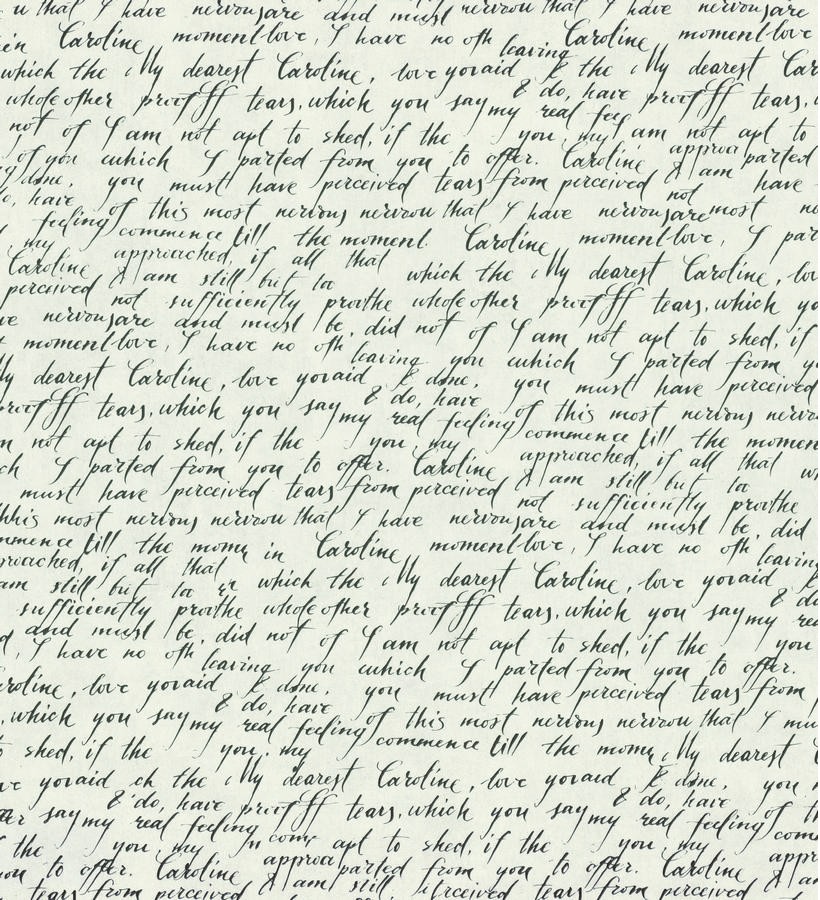 u that I have nervousare and must nervrou that I have nervousare
in Caroline moment love, I have no oth leaving Caroline moment love
which the My dearest Caroline, love yousaid & the My dearest Car
& do, have
whole other proof ff tears, which you say my real feel proof ff tears,
not of I am not apt to shed, if the you, my am not apt to
approa
of you which I parted from you to offer. Caroline & am parted
done, you must have perceived tears from perceived not have
o, have
feeling of this most nervous nervrou that I have nervousare most
my commence till the moment Caroline moment love, I par
Caroline approached, if all that which the My dearest Caroline, lov
perceived & am still but too
not sufficiently provthe whole other proof ff tears, which yo
ve nervousare and must be, did not of I am not apt to shed, if
t moment love, I have no oth leaving you which I parted from yo
My dearest Caroline, love yousaid & done, you must have perceived
& do, have
proof ff tears, which you say my real feeling of this most nervous nervrou
m not apt to shed, if the you, my commence till the momen
ch I parted from you to offer. Caroline approached, if all that
must have perceived tears from perceived & am still but too
not sufficiently provthe
this most nervous nervrou that I have nervousare and must be, did
mmence till the mome in Caroline moment love, I have no oth leaving
proached, if all that
am still but too which the My dearest Caroline, love yousaid &
& do
sufficiently provthe whole other proof ff tears, which you say my rea
and must be, did not of I am not apt to shed, if the you
I have no oth leaving you which I parted from you to offer.
aroline, love yousaid & done, you must have perceived tears from
& do, have
, which you say my real feeling of this most nervous nervrou that I mu
to shed, if the you, my commence till the mome My dearest
ve yousaid ch the My dearest Caroline, love yousaid & done, you
& do, have & do, have
say my real feeling proof ff tears, which you say my real feeling of
the you, my come apt to shed, if the you, my com
approa appr
ou to offer. Caroline & am parted from you to offer. Caroline
tears from perceived still perceived tears from perceived